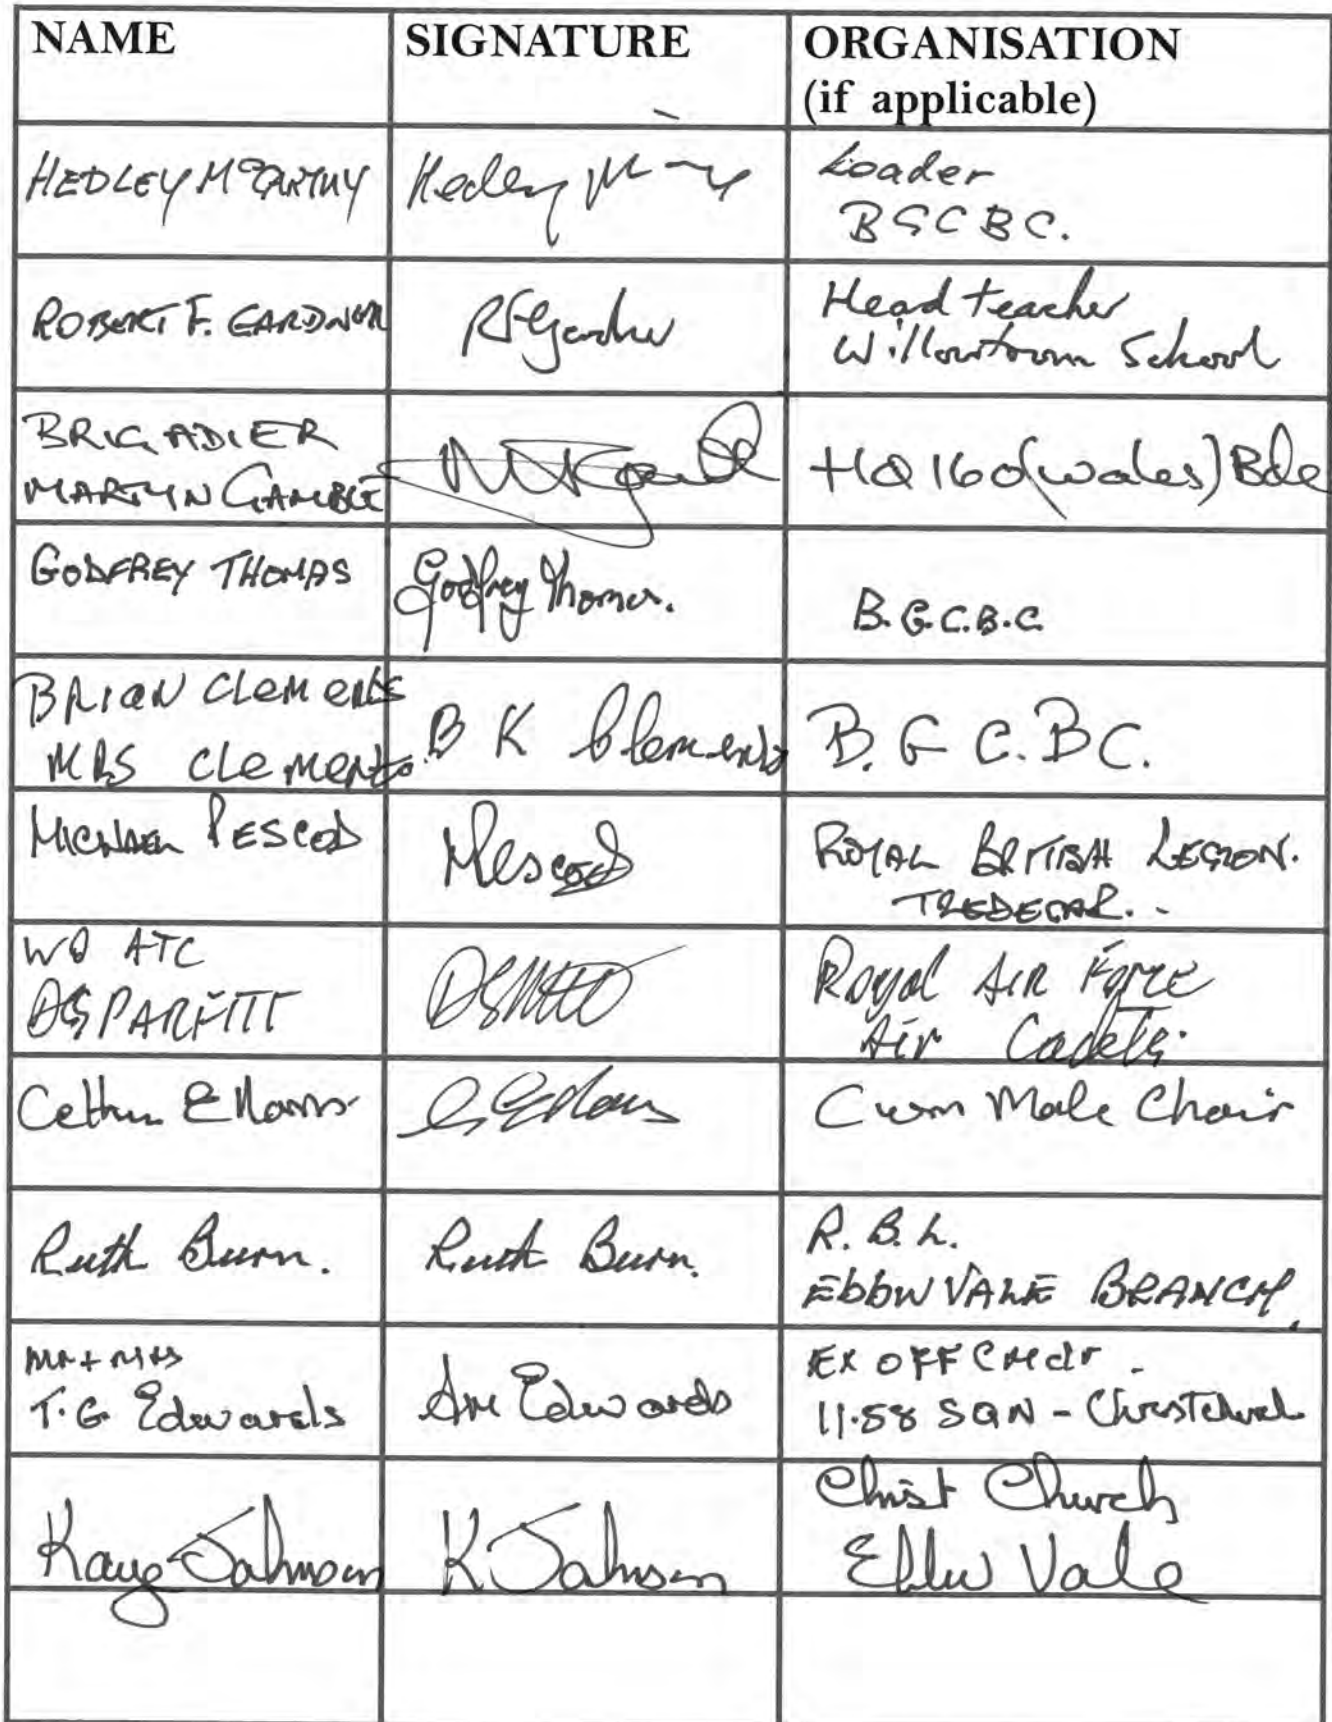 NAME SIGNATURE ORGANISATION
(if applicable)
HEDLEY McCARTHY Hedley Leader
BGCBC.
ROBERT F. GARDNER RFGardner Head teacher
Willowtown School
BRIGADIER
MARTYN GAMBLE HQ 160 (Wales) Bde
GODFREY THOMAS Godfrey Thomas. B.G.C.B.C
BRIAN CLEMENTS
MRS CLEMENTS. B K Clements B.G C.BC.
MICHAEL PESCOD MPescod ROYAL BRITISH LEGION.
TREDEGAR.
WO ATC
DG PARFITT Royal AIR FORCE
Air Cadets.
Cwm Male Choir
Ruth Burn. Ruth Burn. R.B.L.
EBBW VALE BRANCH.
MR + MRS
T.G. Edwards Edwards EX OFF Cmdr.
11.58 SQN - Christchurch
Kaye Johnson K Johnson Christ Church
Ebbw Vale